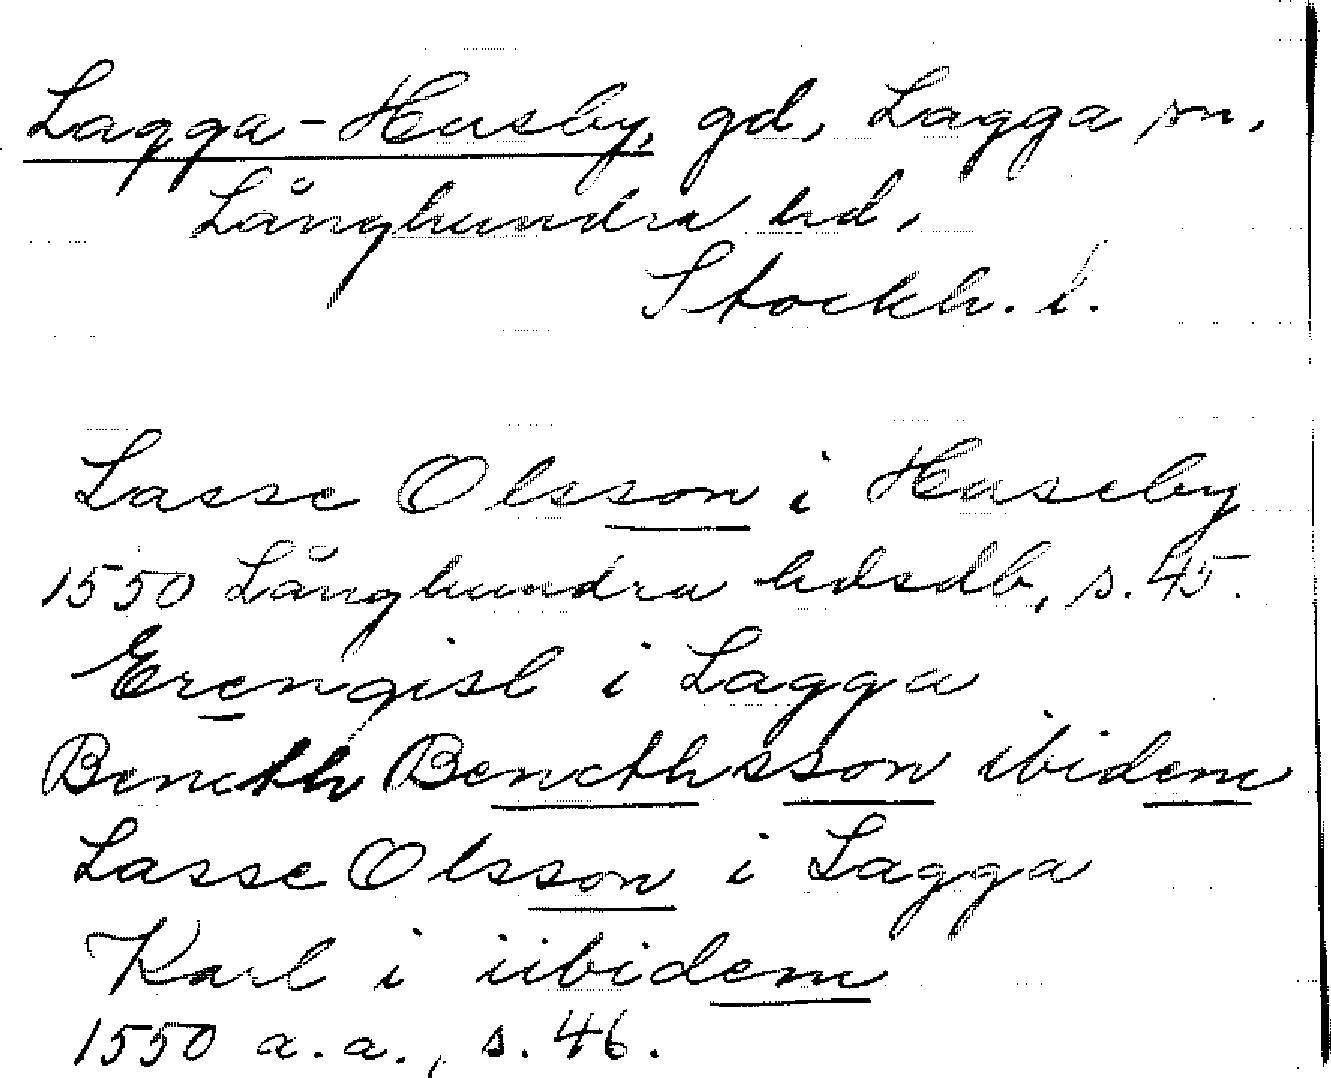 Lagga-Husby, gd, Lagga sn,
Långhundra hd,
Stockh. l.
Lasse Olsson i Huseby
1550 Långhundra hdsdb, s. 45.
Erengisl i Lagga
Bencth Bencthsson ibidem
Lasse Olsson i Lagga
Karl i iibidem
1550 a.a., s. 46.